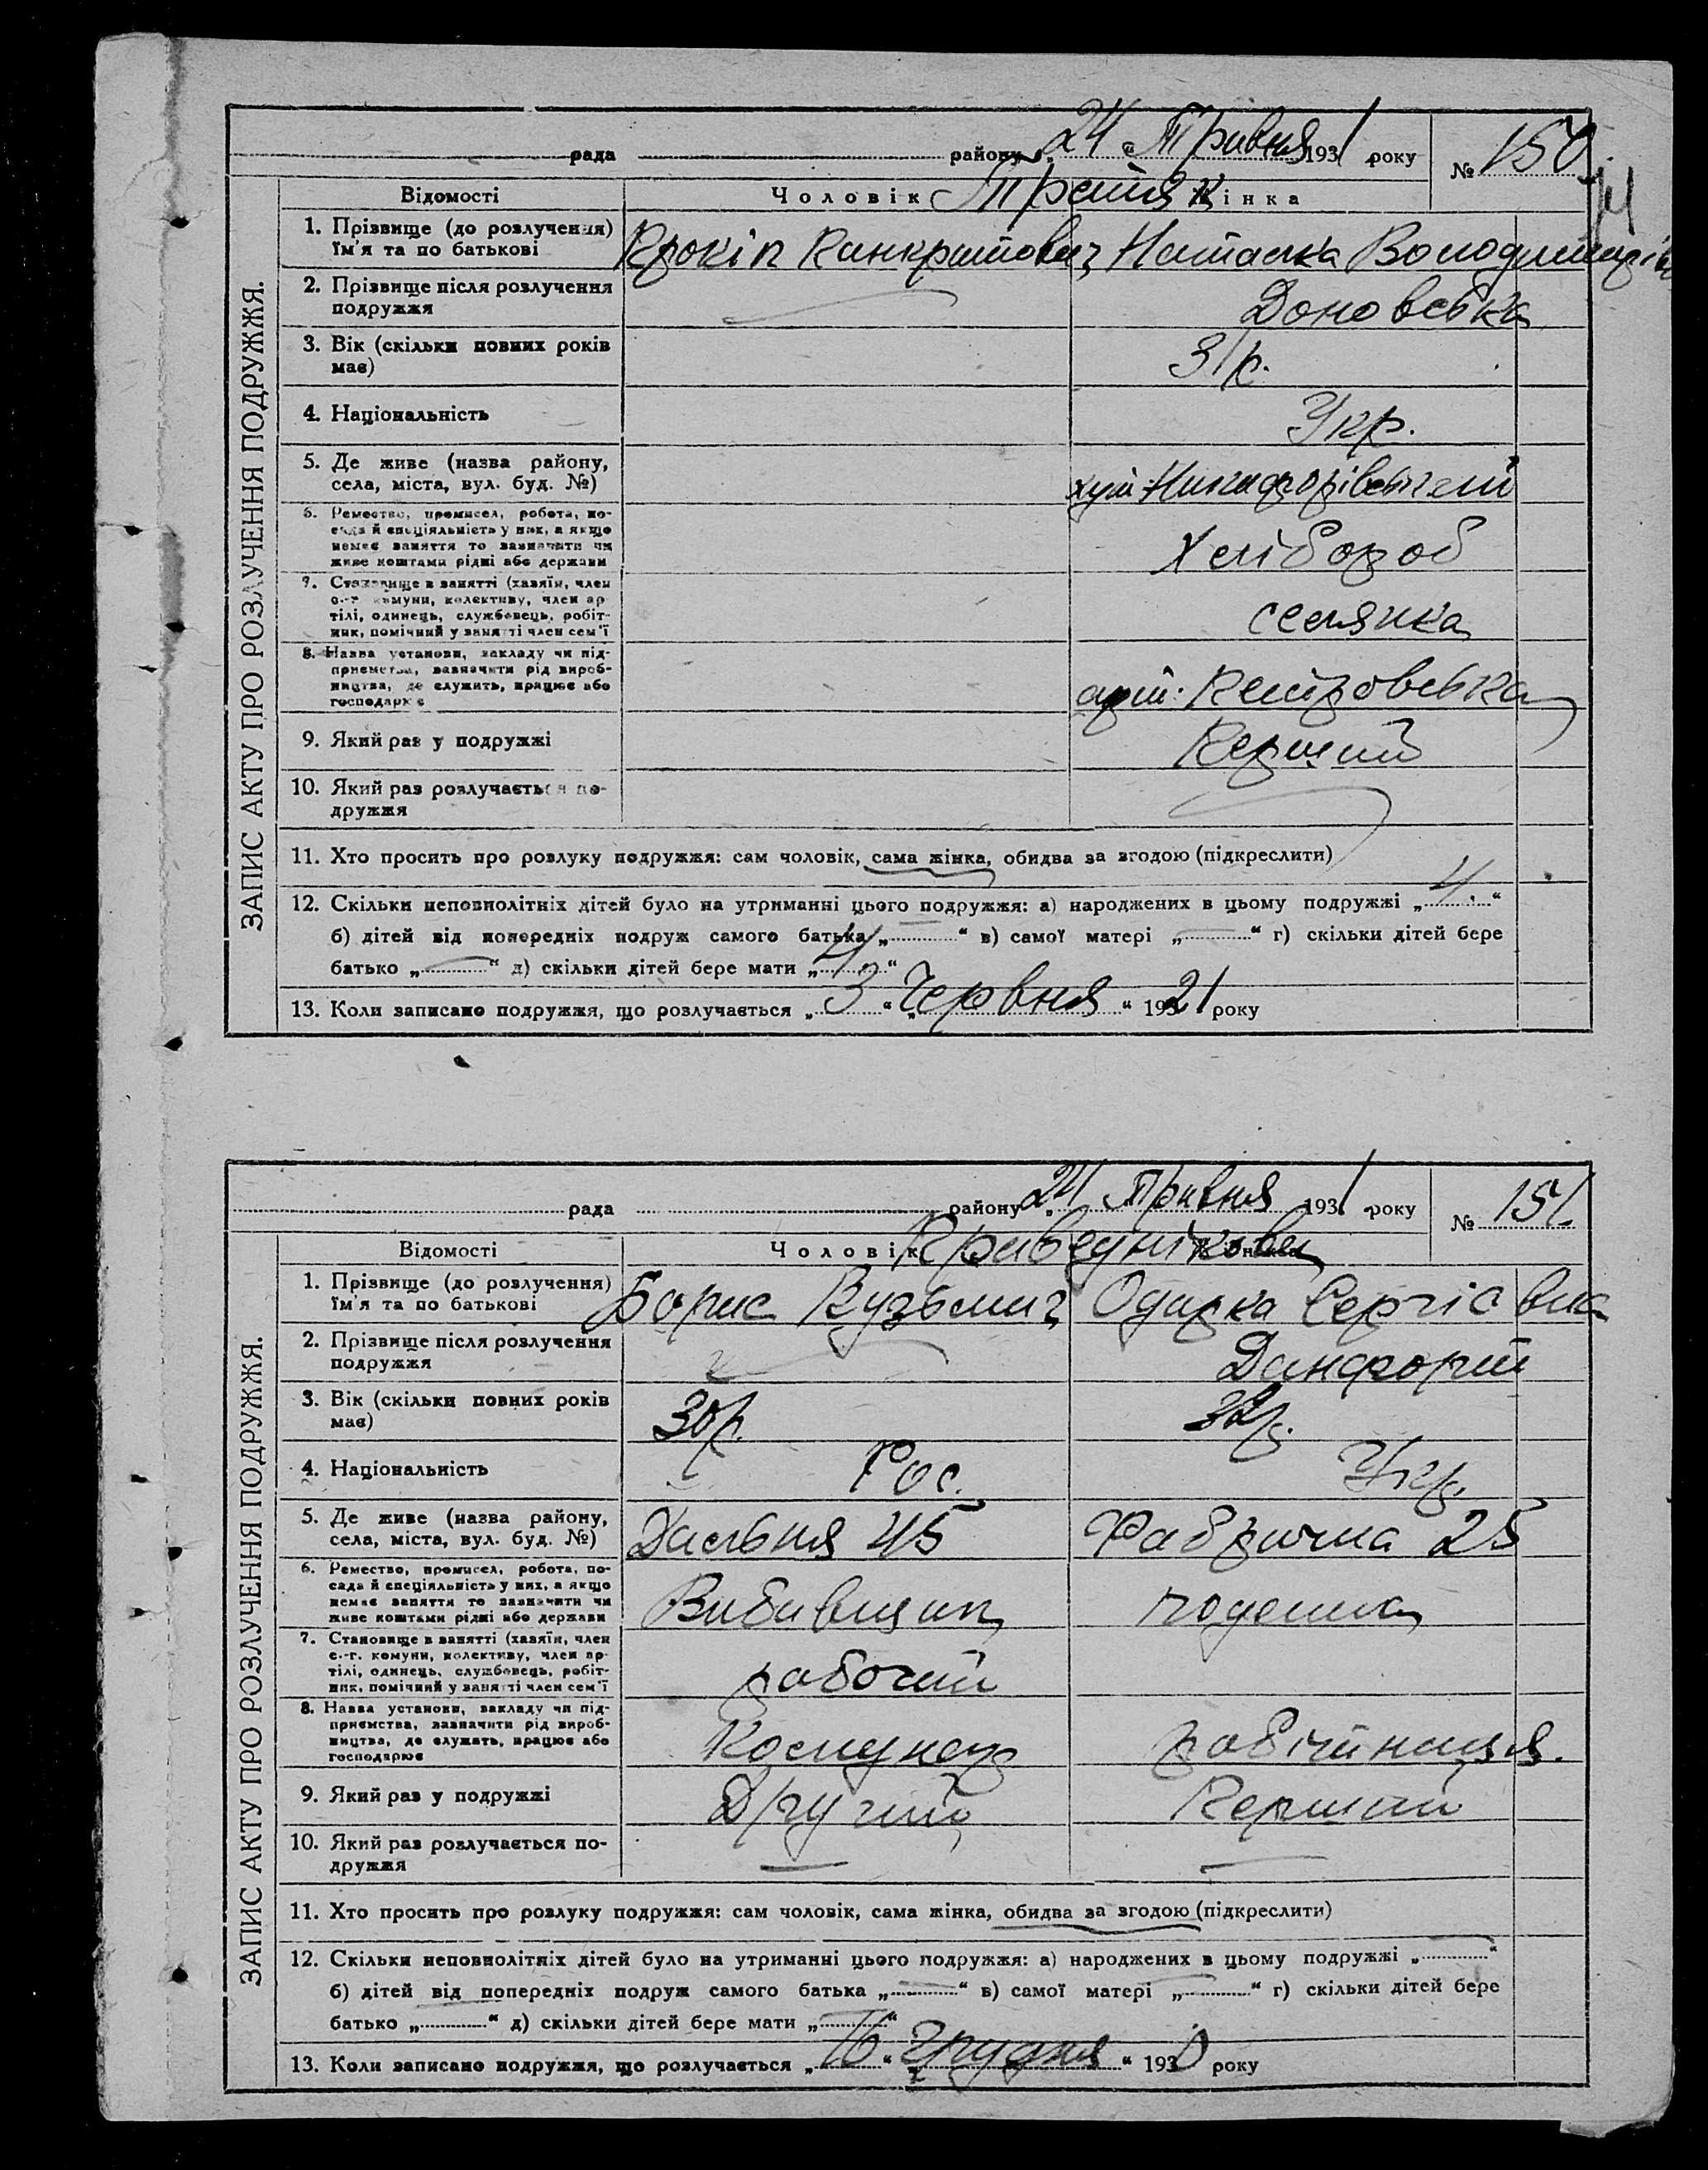 рада району „24“ Травня 1931 року № 150
Відомості Чоловік Жінка
Третяк
ЗАПИС АКТУ ПРО РОЗЛУЧЕННЯ ПОДРУЖЖЯ.
1. Прізвище (до розлучення) Ім'я та по батькові Прокіп Панкратович Наталка Володимирівна
2. Прізвище після розлучення подружжя Доновська
3. Вік (скільки повних років має) 31 р.
4. Національність Укр.
5. Де живе (назва району, села, міста, вул. буд. №) хут.
6. Ремество, промисел, робота, посада й спеціяльність у них, а якщо немає заняття то зазначити чи живе коштами рідні або держави Хлібороб
7. Становище в занятті (хазяїн, член с.-г. комуни, колективу, член артілі, одинець, службовець, робітник, помічний у занятті член сем'ї селянка
8. Назва установи, закладу чи підприємства, зазначити рід виробництва, де служить, працює або господарює арт: Петровська
9. Який раз у подружжі Перший
10. Який раз розлучається подружжя
11. Хто просить про розлуку подружжя: сам чоловік, сама жінка, обидва за згодою (підкреслити)
12. Скільки неповнолітніх дітей було на утриманні цього подружжя: а) народжених в цьому подружжі „4.“
б) дітей від попередніх подруж самого батька „—“ в) самої матері „—“ г) скільки дітей бере
батько „—“ д) скільки дітей бере мати „4“
13. Коли записано подружжя, що розлучається „3“ „Червня“ 1921 року
рада району „24 Травня 1931 року № 151.
Відомості Чоловік Жінка
Праведнікови
ЗАПИС АКТУ ПРО РОЗЛУЧЕННЯ ПОДРУЖЖЯ.
1. Прізвище (до розлучення) Ім'я та по батькові Борис Кузьмич Одарка Сергієвна
2. Прізвище після розлучення подружжя Данфорт
3. Вік (скільки повних років має) 30 р. 32 р.
4. Національність Рос. Укр.
5. Де живе (назва району, села, міста, вул. буд. №) Дальня 45 Фабрична 25
6. Ремество, промисел, робота, посада й спеціяльність у них, а якщо немає заняття то зазначити чи живе коштами рідні або держави Вибивщик поденна
7. Становище в занятті (хазяїн, член с.-г. комуни, колективу, член артілі, одинець, службовець, робітник, помічний у занятті член сем'ї рабочий
8. Назва установи, закладу чи підприємства, зазначити рід виробництва, де служить, працює або господарює Комунар робітниця.
9. Який раз у подружжі Другий Перший
10. Який раз розлучається подружжя — —
11. Хто просить про розлуку подружжя: сам чоловік, сама жінка, обидва за згодою (підкреслити)
12. Скільки неповнолітніх дітей було на утриманні цього подружжя: а) народжених в цьому подружжі „—“
б) дітей від попередніх подруж самого батька „—“ в) самої матері „—“ г) скільки дітей бере
батько „“ д) скільки дітей бере мати „—“
13. Коли записано подружжя, що розлучається „16“ „грудня“ 1930 року